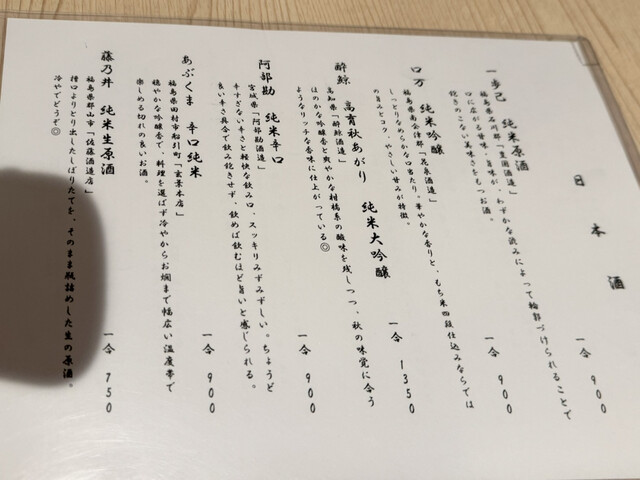 日本酒
一歩己 純米原酒
一合 900
福島県石川郡「豊国酒造」
口に広がる甘味・旨味が、わずかな渋みによって輪郭づけられることで
飽きのこない美味さをもつお酒。
ロ万 純米吟醸
一合 900
福島県南会津郡「花泉酒造」
しっとりなめらかな口当たり・華やかな香りと、もち米四段仕込みならでは
の旨みとコク、やさしい甘みが特徴。
酔鯨 高育秋あがり 純米大吟醸
一合 1350
高知県「酔鯨酒造」
ほのかな吟醸香と爽やかな柑橘系の酸味を残しつつ、秋の味覚に合う
ようなリッチな香味に仕上がっている◎
阿部勘 純米辛口
一合 900
宮城県「阿部勘酒造」
辛すぎない辛さと軽快な飲み口、スッキリみずみずしい。ちょうど
良い辛さ具合で飲み飽きせず、飲めば飲むほど旨いと感じられる。
あぶくま 辛口純米
一合 900
福島県田村市船引町「玄葉本店」
穏やかな吟醸香で、料理を選ばず冷やからお燗まで幅広い温度帯で
楽しめる切れの良いお酒。
藤乃井 純米生原酒
一合 750
福島県郡山市「佐藤酒造店」
槽口よりとり出したしぼりたてを、そのまま瓶詰めした生の原酒。
冷やでどうぞ◎